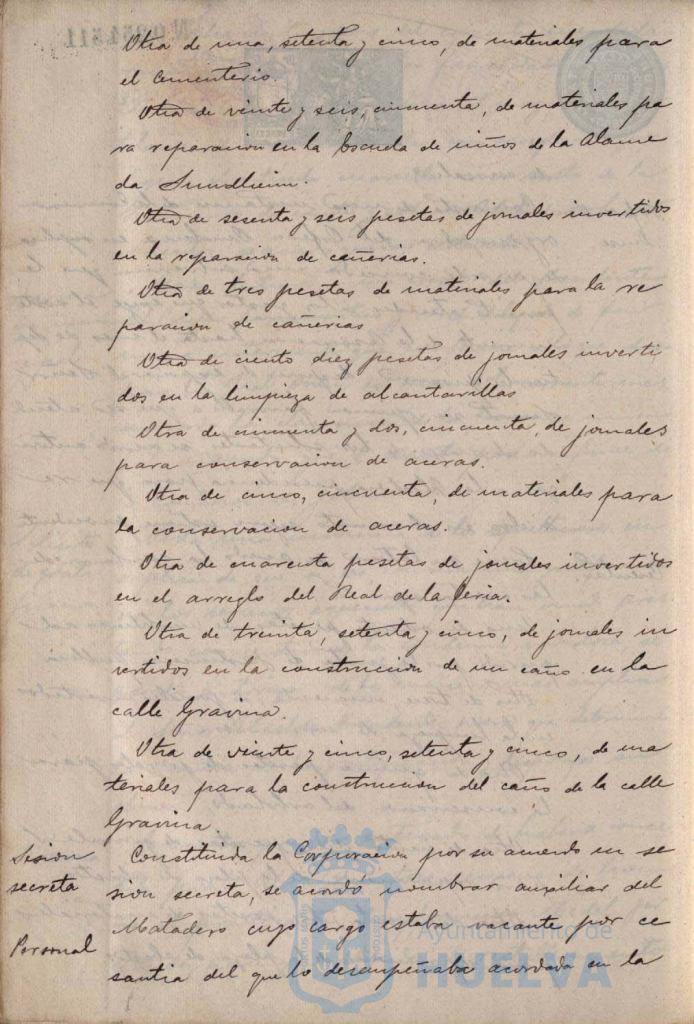 Otra de una, setenta y cinco, de materiales para
el Cementerio.
Otra de veinte y seis, cincuenta, de materiales pa
ra reparacion en la Escuela de niños de la Alame
da Sundheim.
Otra de sesenta y seis pesetas de jornales invertidos
en la reparacion de cañerias.
Otra de tres pesetas de materiales para la re
paracion de cañerias
Otra de ciento diez pesetas de jornales inverti
dos en la limpieza de alcantarillas
Otra de cincuenta y dos, cincuenta, de jornales
para conservacion de aceras.
Otra de cinco, cincuenta, de materiales para
la conservacion de aceras.
Otra de cuarenta pesetas de jornales invertidos
en el arreglo del Real de la feria.
Otra de treinta, setenta y cinco, de jornales in
vertidos en la construccion de un caño en la
calle Gravina.
Otra de veinte y cinco, setenta y cinco, de ma
teriales para la construccion del caño de la calle
Gravina.
Sesion
secreta
Constituida la Corporacion por su acuerdo en se
sion secreta, se acordó nombrar auxiliar del
Personal
Matadero cuyo cargo estaba vacante por ce
santia del que lo desempeñaba acordada en la
Ayuntamiento de
HUELVA